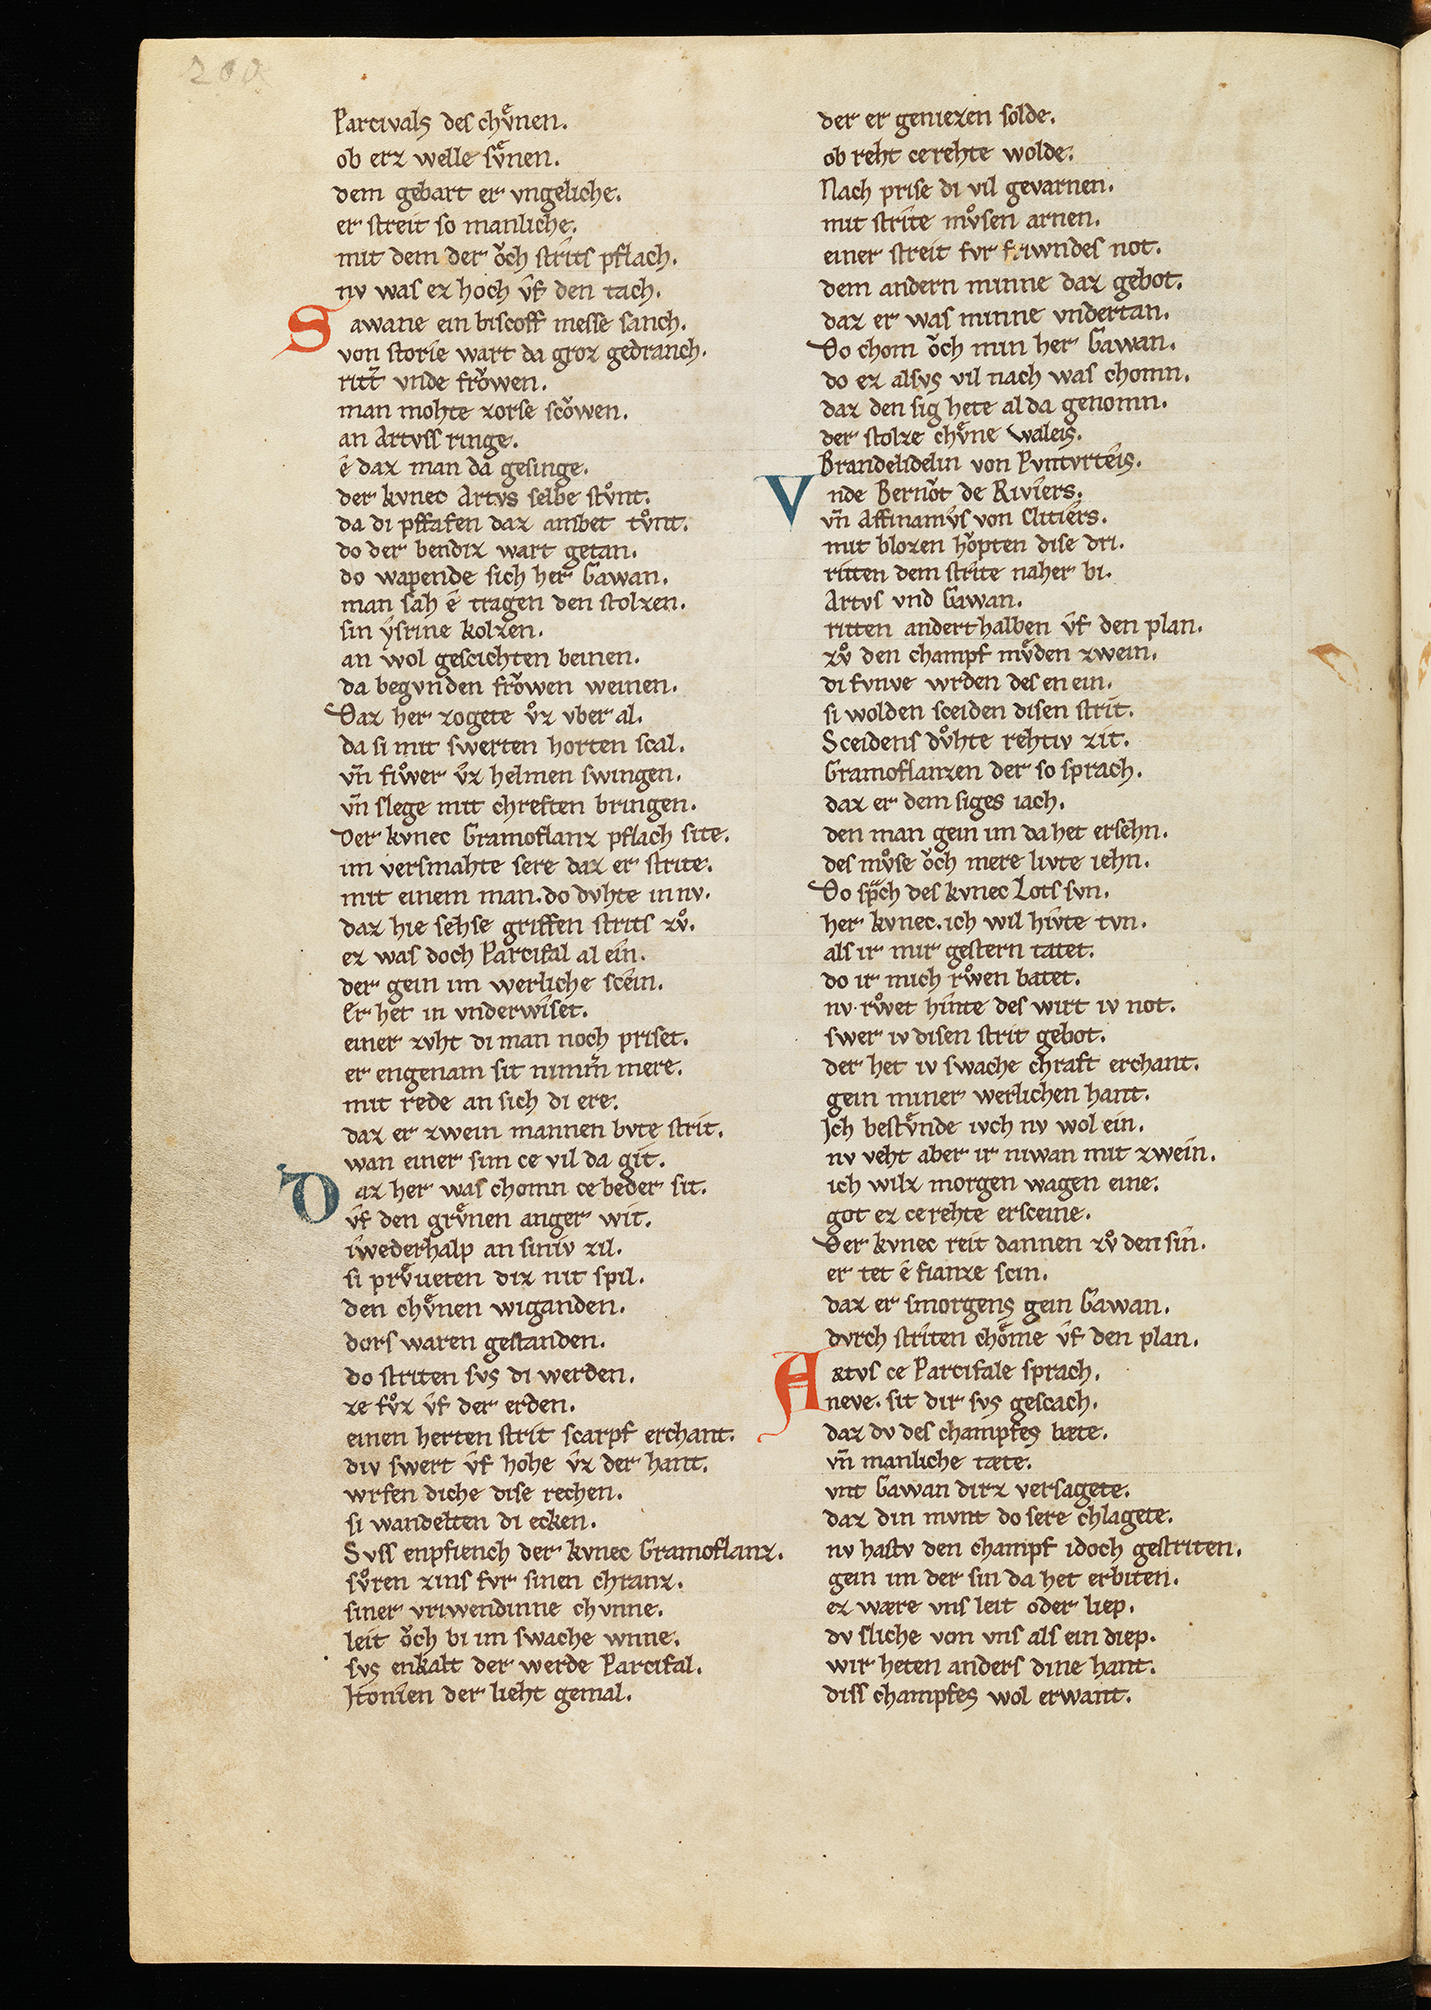 200
Parcivals des chv̊nen.
ob erz welle sv̊nen.
dem gebart er vngeliche.
er streit so manliche.
mit dem der ǒch strîts pflach.
nv was ez hoch v̂f den tach.
Sawane ein biscoff messe sanch.
von storîe wart da groz gedranch.
ritt̄ vnde frǒwen.
man mohte zorse scǒwen.
an Artvss ringe.
ê daz man da gesinge.
der kvnec Artvs selbe stv̊nt.
da di pffafen daz ambet tv̊nt.
do der bendiz wart getan.
do wapende sich her Gawan.
man sah ê tragen den stolzen.
sin ŷsrine kolzen.
an wol gescichten beinen.
da begvnden frǒwen weinen.
Daz her zogete v̊z vber al.
da si mit swerten horten scal.
vn̄ fiv̊wer v̂z helmen swingen.
vn̄ slege mit chreften bringen.
Der kvnec Gramoflanz pflach site.
im versmahte sere daz er strite.
mit einem man. do dvhte in nv.
daz hie sehse griffen strits zv̊.
ez was doch Parcifal al ein.
der gein im werliche scein.
Er het in vnderwîset.
einer zvht di man noch priset.
er engenam sit nimm̄ mere.
mit rede an sich di ere.
daz er zwein mannen bvte strit.
wan einer sim ce vil da git.
Daz her was chomn ce beder sit.
v̂f den grv̊nen anger wit.
iwederhalp an siniv zil.
si prv̊ueten diz nit spil.
den chv̊nen wiganden.
dors waren gestanden.
do striten svs di werden.
ze fv̊z v̂f der erden.
einen herten strit scarpf erchant.
div swert v̂f hohe v̂z der hant.
wrfen diche dise rechen.
si wandelten di ecken.
Svss enpfiench der kvnec Gramoflanz.
sv̊ren zins fvr sinen chranz.
siner vriwendinne chvnne.
leit ǒch bi im swache wnne.
svs enkalt der werde Parcifal.
Jtonîen der lieht gemal.
der er geniezen solde.
ob reht cerehte wolde.
Nach prise di vil gevarnen.
mit strîte mv̊sen arnen.
einer streit fvr friwndes not.
dem andern minne daz gebot.
daz er was minne vndertan.
Do chom ǒch min her Gawan.
do ez alsvs vil nach was chomn.
daz den sig hete al da genomn.
der stolze chv̊ne waleis.
Brandelidelin von Pvntvrteîs.
Vnde Bernôt de Rivîers.
vn̄ Affinamv̂s von Clitîers.
mit blozen hǒpten dise dri.
ritten dem strîte naher bi.
Artvs vnd Gawan.
ritten anderthalben v̂f den plan.
zv̊ den champf mv̊den zwein.
di fvnve wrden des en ein.
si wolden sceiden disen strit.
Sceidens dv̊hte rehtiv zit.
Gramoflanzen der so sprach.
daz er dem siges iach.
den man gein im da het ersehn.
des mv̊se ǒch mere livte iehn.
Do sp̄ch des kvnec Lots svn.
her kvnec. ich wil hîvte tvn.
als ir mir gestern tatet.
do ir mich rv̊wen batet.
nv rv̊wet hînte des wirt iv not.
swer iv disen strit gebot.
der het iv swache chraft erchant.
gein miner werlichen hant.
Jch bestv̊nde ivch nv wol ein.
nv veht aber ir niwan mit zwein.
ich wilz morgen wagen eine.
got ez cerehte ersceine.
Der kvnec reit dannen zv̊ den sîn.
er tet ê fianze scin.
daz er smorgens gein Gawan.
dvrch strîten chŏme v̂f den plan.
Aætvs ce Parcifale sprach.
neve. sit dir svs gescach.
daz dv des champfes bæte.
vn̄ manliche tæte.
vnt Gawan dirz versagete.
daz din mvnt do sere chlagete.
nv hastv den champf idoch gestriten.
gein im der sin da het erbiten.
ez wære vns leit oder liep.
dv sliche von vns als ein diep.
wir heten anders dine hant.
diss champfes wol erwant.